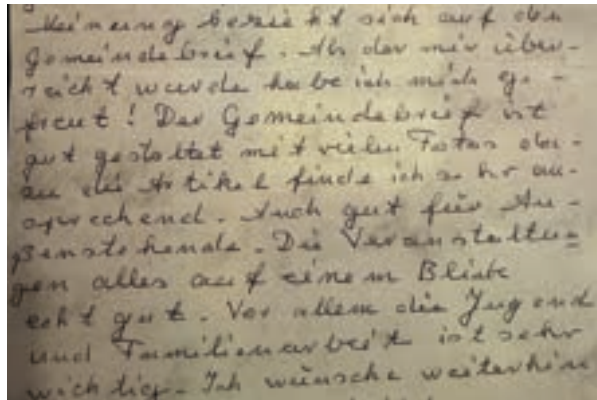 Meinung bezieht sich auf den
Gemeindebrief. Als der mir über-
reicht wurde habe ich mich ge-
freut! Der Gemeindebrief ist
gut gestaltet mit vielen Fotos
die Artikel finde ich sehr an-
sprechend. Auch gut für Au-
ßenstehende. Die Veranstaltun-
gen alles auf einem Blick
echt gut. Vor allem die Jugend
und Familienarbeit ist sehr
wichtig. Ich wünsche weiterhin